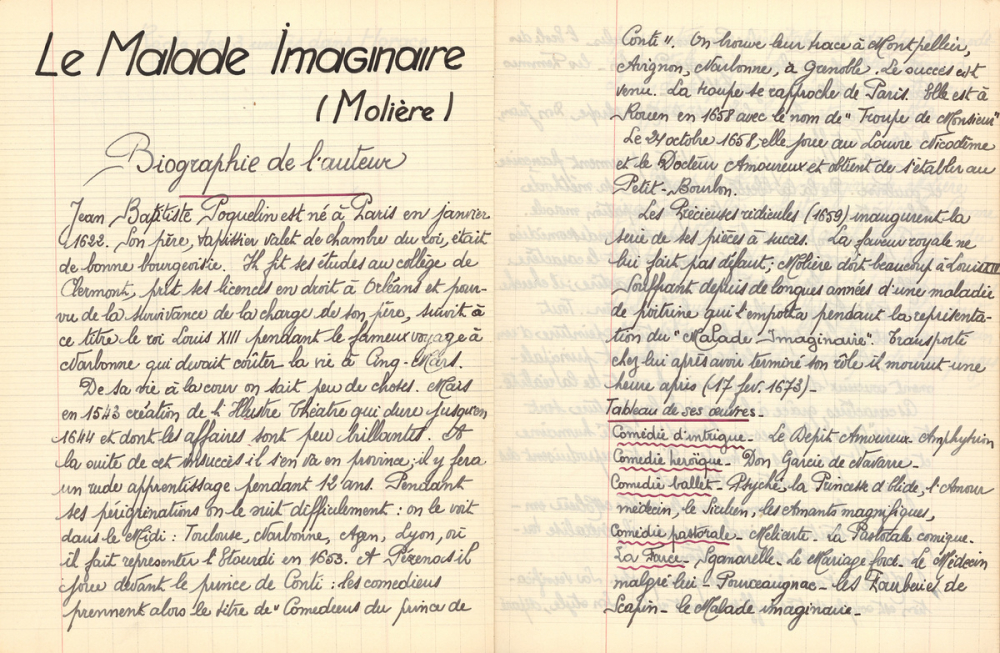 Le Malade Imaginaire
(Molière)
Biographie de l'auteur
Jean Baptiste Poquelin est né à Paris en janvier
1622. Son père, tapissier valet de chambre du roi, était
de bonne bourgeoisie. Il fit ses études au collège de
Clermont, prit ses licences en droit à Orléans et pour-
vu de la survivance de la charge de son père, suivit à
ce titre le roi Louis XIII pendant le fameux voyage à
Narbonne qui devait coûter la vie à Cinq-Mars.
De sa vie à la cour on sait peu de choses. Mais
en 1543 création de l'Illustre Théâtre qui dure jusqu'en
1644 et dont les affaires sont peu brillantes. A
la suite de cet insuccès il s'en va en province; il y fera
un rude apprentissage pendant 12 ans. Pendant
ses pérégrinations on le suit difficilement: on le voit
dans le Midi: Toulouse, Narbonne, Agen, Lyon, où
il fait représenter l'Etourdi en 1653. A Pézenas il
joue devant le prince de Conti: les comédiens
prennent alors le titre de "Comédiens du prince de
Conti". On trouve leur trace à Montpellier,
Avignon, Narbonne, à Grenoble. Le succès est
venu. La troupe se rapproche de Paris. Elle est à
Rouen en 1658 avec le nom de "Troupe de Monsieur"
Le 24 octobre 1658, elle joue au Louvre Nicodème
et le Docteur Amoureux et obtient de s'établir au
Petit-Bourbon.
Les Précieuses ridicules (1659) inaugurent la
série de ses pièces à succès. La faveur royale ne
lui fait pas défaut; Molière doit beaucoup à Louis XIV
Souffrant depuis de longues années d'une maladie
de poitrine qui l'emporta pendant la représenta-
tion du "Malade Imaginaire". Transporté
chez lui après avoir terminé son rôle il mourut une
heure après (17 fev. 1673)_
Tableau de ses œuvres_
Comédie d'intrigue_ Le Dépit Amoureux. Amphytrion
Comédie heroïque_ Don Garcie de Navarre_
Comédie ballet_ Psyché, la Princesse d'élide, l'Amour
médecin, le Sicilien, les Amants magnifiques,
Comédie pastorale_ Mélicerte_ la Pastorale comique_
La Farce_ Sganarelle_ Le Mariage forcé. Le Médecin
malgré lui_ Pourceaugnac_ les Fourberies de
Scapin_ le Malade imaginaire_